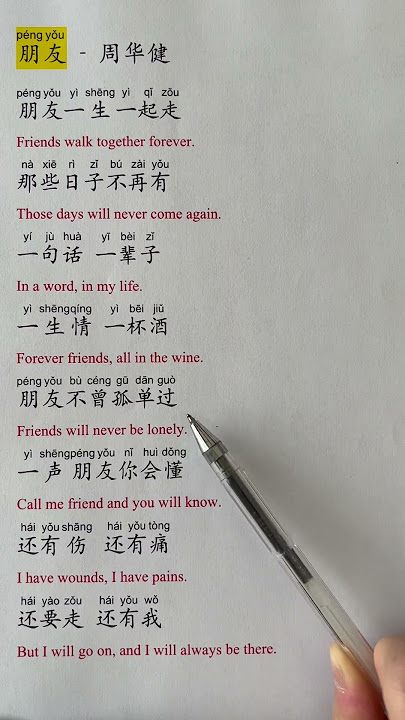 péng yǒu
朋友 - 周华健
péng yǒu yì shēng yì qǐ zǒu
朋友一生一起走
Friends walk together forever.
nà xiē rì zǐ bú zài yǒu
那些日子不再有
Those days will never come again.
yí jù huà yī bèi zǐ
一句话 一辈子
In a word, in my life.
yì shēngqíng yì bēi jiǔ
一生情 一杯酒
Forever friends, all in the wine.
péng yǒu bù céng gū dān guò
朋友不曾孤单过
Friends will never be lonely.
yì shēngpéng yǒu nǐ huì dǒng
一声 朋友你会懂
Call me friend and you will know.
hái yǒu shāng hái yǒu tòng
还有伤 还有痛
I have wounds, I have pains.
hái yào zǒu hái yǒu wǒ
还要走 还有我
But I will go on, and I will always be there.